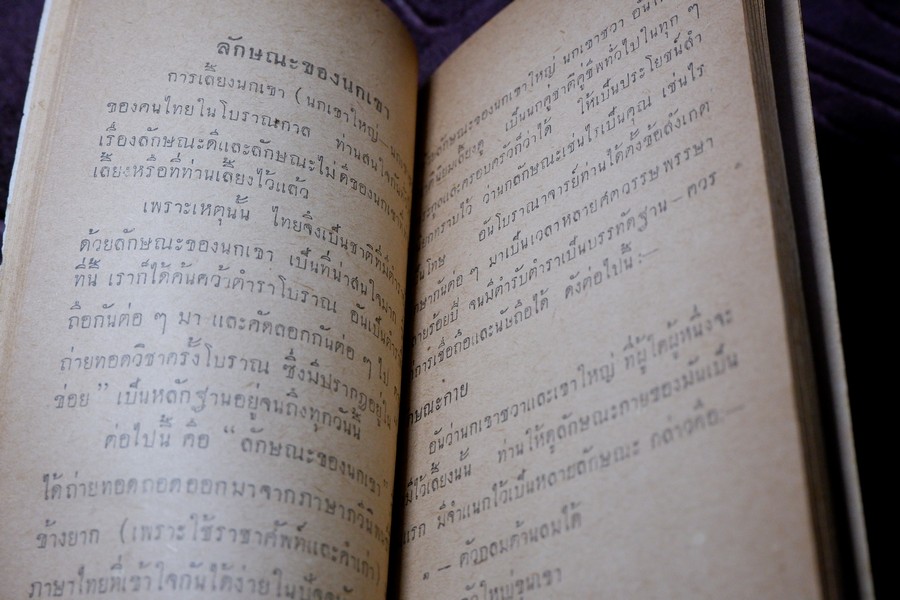 ลักษณะของนกเขา
การเลี้ยงนกเขา (นกเขาใหญ่—
ของคนไทยในโบราณกาล ท่านสนใจกัน
เรื่องลักษณะดีและลักษณะไม่ดีของนกเขา
เลี้ยงหรือที่ท่านเลี้ยงไว้แล้ว
เพราะเหตุนั้น ไทยจึงเป็นชาติที่มีตำรา
ด้วยลักษณะของนกเขา เป็นที่น่าสนใจมาก
ที่นี้ เราก็ได้ค้นคว้าตำราโบราณ อันเป็น
ถือกันต่อ ๆ มา และคัดลอกกันต่อ ๆ ไป
ถ่ายทอดวิชาครั้งโบราณ ซึ่งมีปรากฏอยู่ใน
ข่อย ” เป็นหลักฐานอยู่จนถึงทุกวันนี้
ต่อไปนี้ คือ “ ลักษณะของนกเขา”
ได้ถ่ายทอดถอดออกมาจากภาษากวี
ข้างยาก (เพราะใช้ราชาศัพท์และคำเก่า)
ภาษาไทยที่เข้าใจกันได้ง่ายใน
ลักษณะของนกเขาใหญ่ นกเขาชวา
นิยมเลี้ยงดู เป็นนกคู่ชาติคู่ชีพทั่วไปในทุก ๆ
และครอบครัวก็ว่าได้ ให้เป็นประโยชน์สำ
ทราบไว้ ว่านกลักษณะเช่นไรเป็นคุณ เช่นไร
เป็นโทษ อันโบราณาจารย์ท่านได้ตั้งข้อสังเกต
กันต่อ ๆ มาเป็นเวลาหลายศตวรรษพรรษา
หลายร้อยปี จนมีตำรับตำราเป็นบรรทัดฐาน—ควร
การเชื่อถือและนับถือได้ ดังต่อไปนี้:—
ลักษณะกาย
อันว่านกเขาชวาและเขาใหญ่ ที่ผู้ใดผู้หนึ่งจะ
มีไว้เลี้ยงนั้น ท่านให้ดูลักษณะกายของมันเป็น
แรก มีจำแนกไว้เป็นหลายลักษณะ กล่าวคือ.—
๑ — ตัวกลมด้านลมใต้